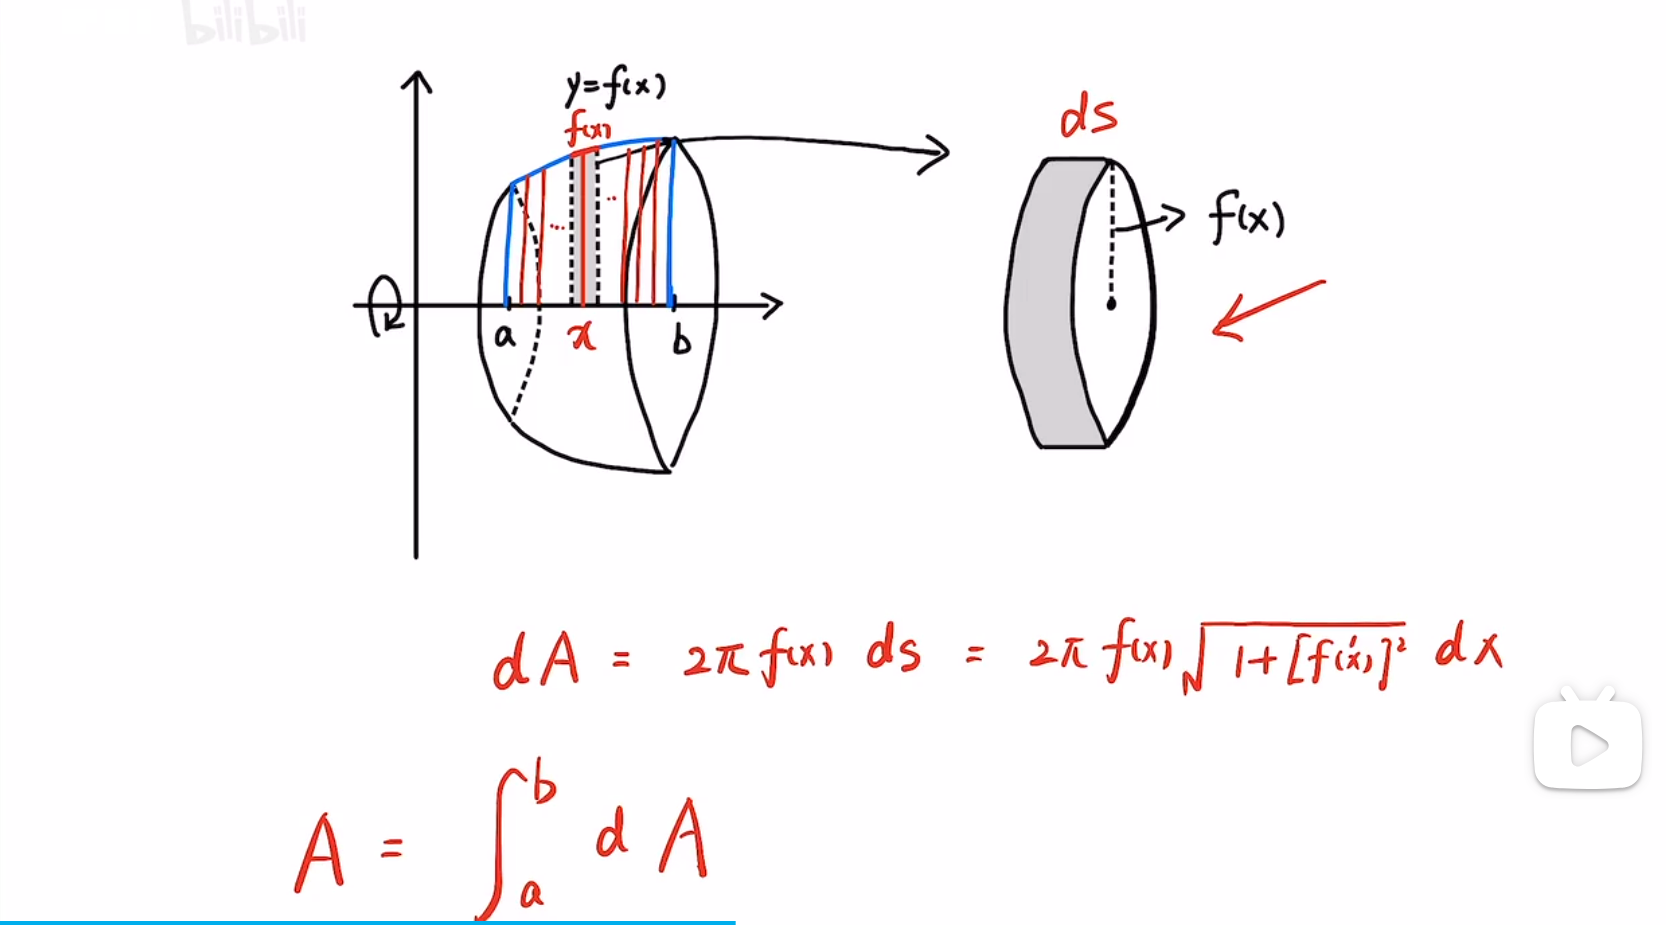 bilibili
y=f(x)
f(x)
ds
f(x)
...
..
a
x
b
dA = 2π f(x) ds = 2π f(x) √1+[f'(x)]² dx
A = ∫ₐᵇ dA